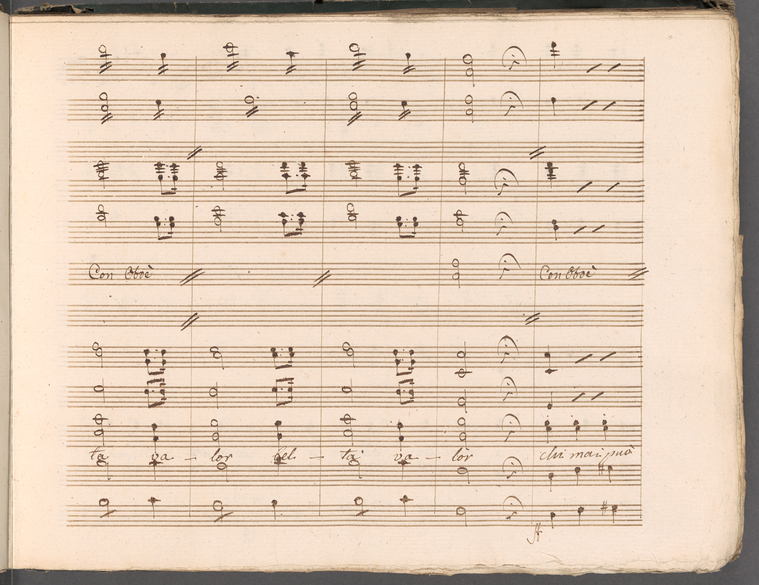 Con Oboè Con Oboè
ta va - lor bel - ta va - lor chi mai può